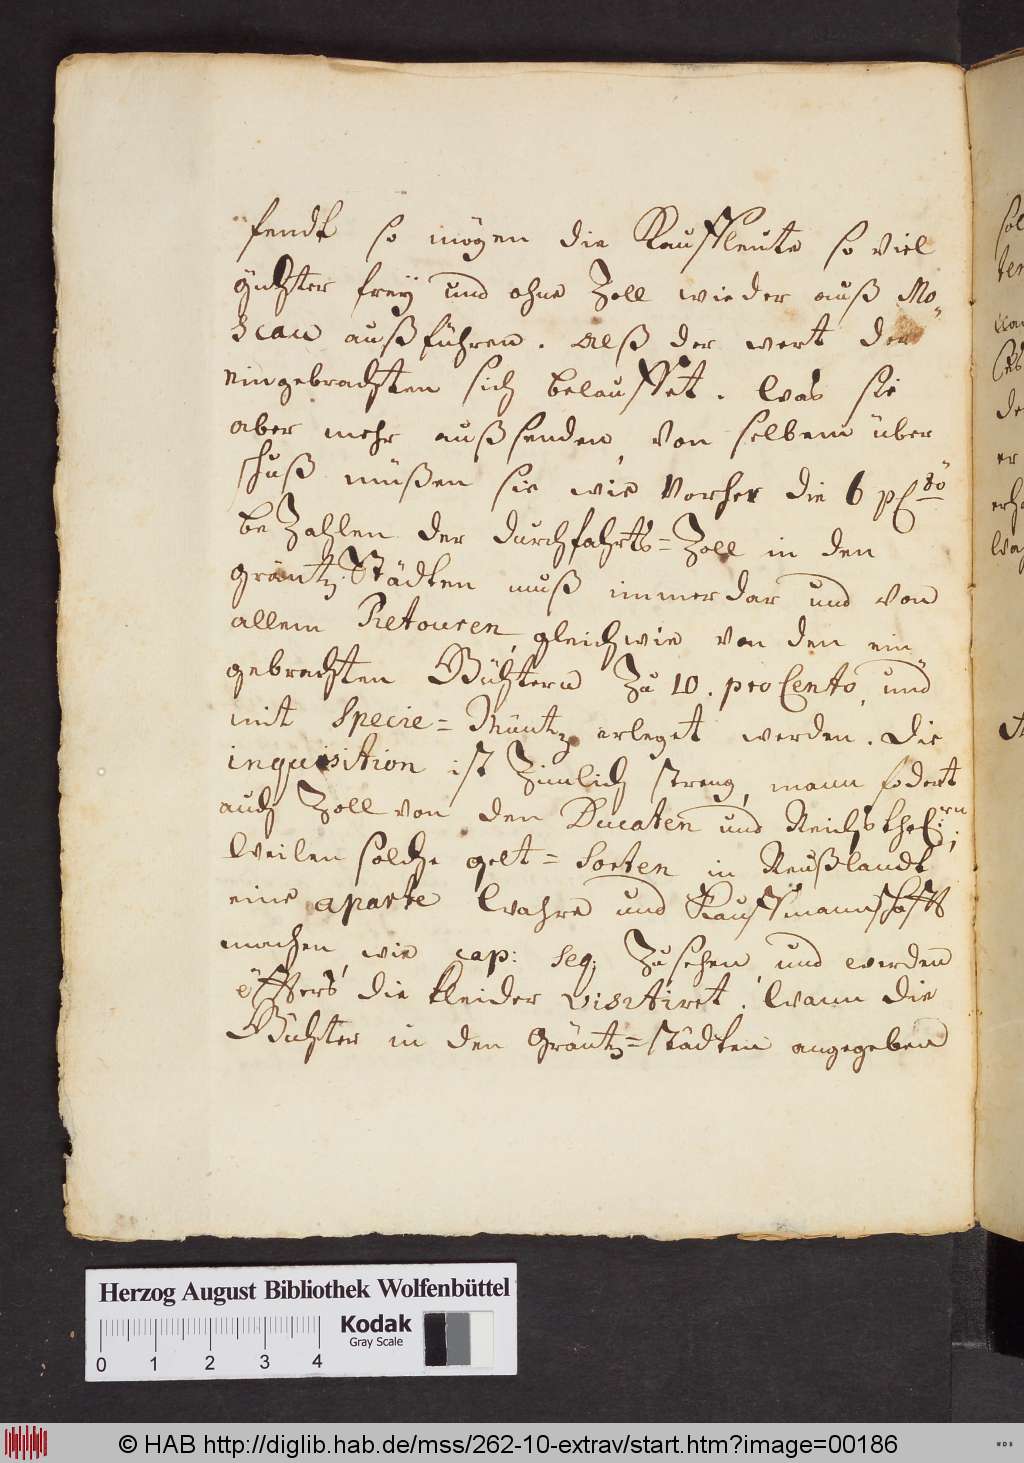 fendt so mögen die Kauffleute so viel
gühter frey und ohne Zoll wieder auß Mo=
scau außführen. Alß der wert der
eingebrachten sich belauffet. Was sie
aber mehr außsenden, von selbem über
schuß müßen sie wie vorher die 6 pC to
be Zahlen der durchfahrts=Zoll in den
gräntz Städten muß immerdar und von
allem Retouren, gleichwie von den ein
gebrachten Gühtern zu 10. pro Cento, und
mit Specie=Müntz erleget werden. Die
inquisition ist Zimlich streng, mann fodert
auch Zoll von den Ducaten und Reichsthlrn;
Weilen solche gelt=Sorten in Reußlandt
eine aparte Wahre und Kauffmannschafft
machen, wie cap: seq: Zusehen, und werden
öffters die kleider visitiret. Wann die
Gühter in den Gräntz=städten angegeben
Herzog August Bibliothek Wolfenbüttel
Kodak
Gray Scale
0 1 2 3 4
© HAB http://diglib.hab.de/mss/262-10-extrav/start.htm?image=00186